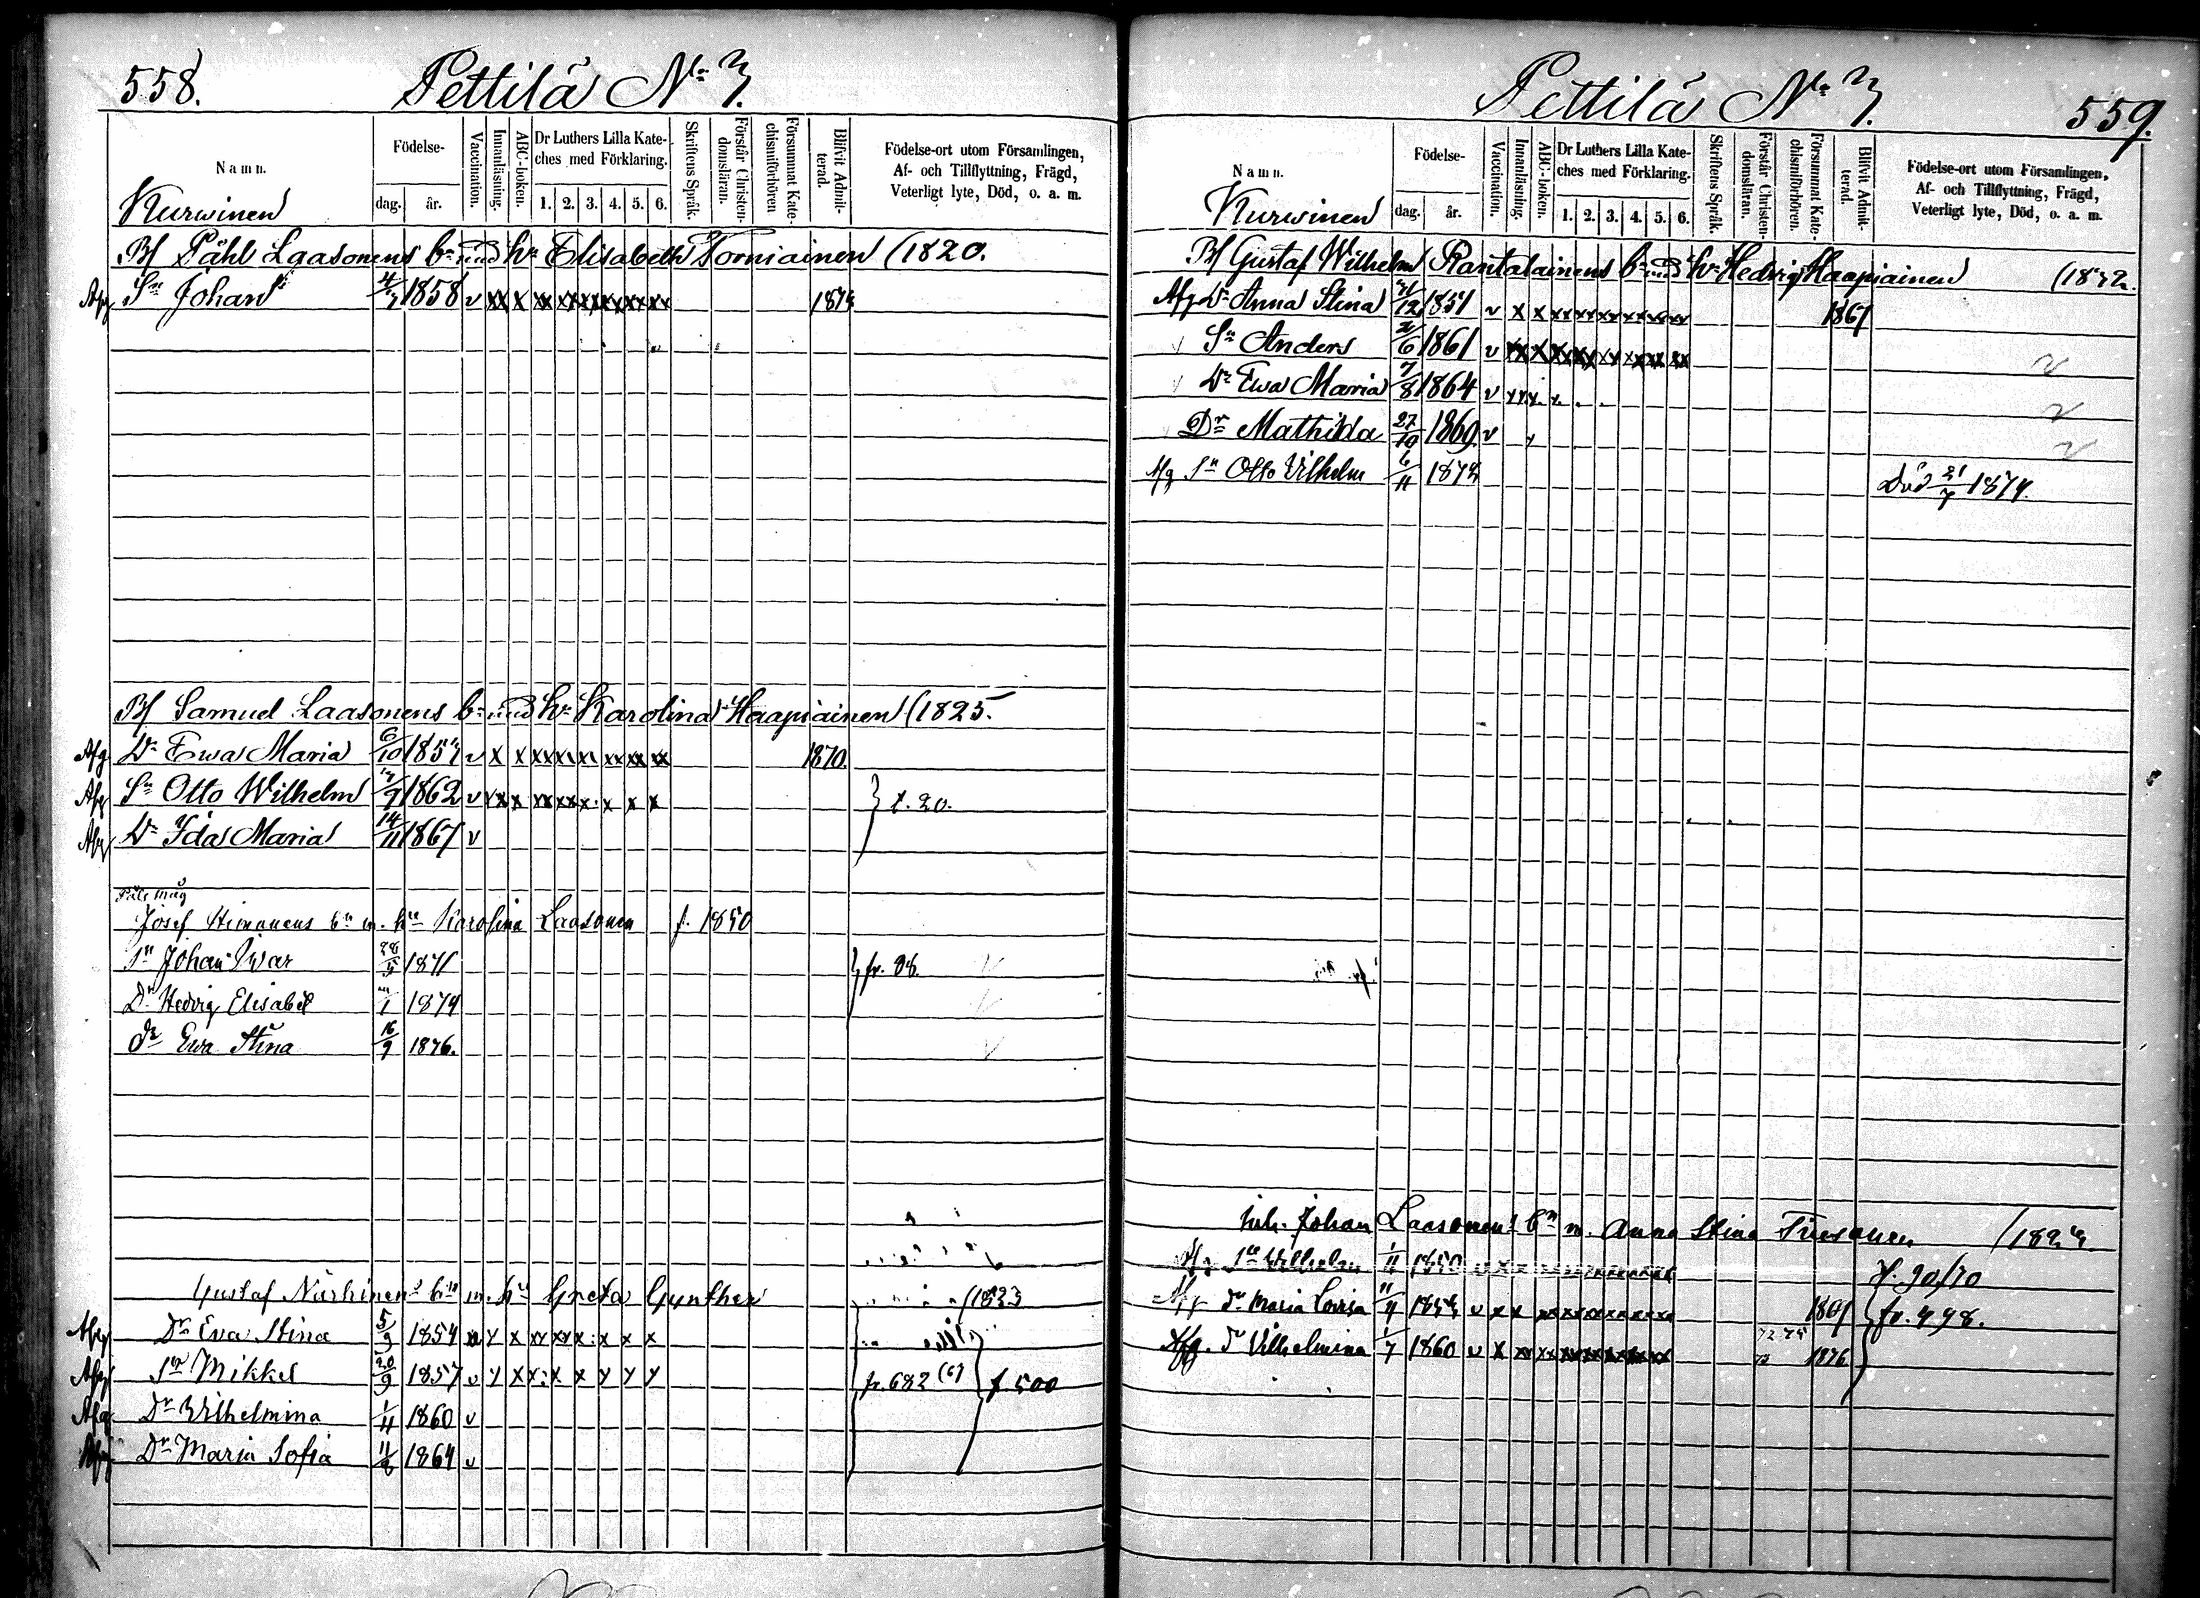 558.
Pettilä No 7.
Namn.
Födelse-
dag.
år.
Vaccination.
Innanläsning.
ABC-boken.
Dr Luthers Lilla Kate-
ches med Förklaring.
1. 2. 3. 4. 5. 6.
Skriftens Språk.
Förstår Christen-
domsläran.
Försummat Kate-
chismiförhören
Blifvit Admit-
terad.
Födelse-ort utom Församlingen,
Af- och Tillflyttning, Frägd,
Veterligt lyte, Död, o. a. m.
Kurwinen
Bf Påhl Laasonens bn med hu Elisabeth Torniainen (1820.
Afg Sn Johan 4/7 1858 v xx x xx xx xx xx xx xx
Bf Samuel Laasonens bn med hu Karolina Haapiainen (1825.
Afg Dr Ewa Maria 6/10 v x x xx xx xx xx xx 1870.
Afg Sn Otto Wilhelm 1862 v
Afg Dr Ida Maria 14/11 1867 v
f. 20.
Påls måg
Josef Himanens bn m. hu Karolina Laasonen f. 1850
Sn Johan Ivar 28/5 1871
Dr Hedvig Elisabet 1874
Dr Ewa Stina 16/9 1876.
Gustaf Nurhinens bn m. hu Greta Gynther (1823
Afg Dr Eva Stina 5/9 1854
Afg Sn Mikkel 20/9 1857 v
fr. 682 (6) f. 500
Afg Dr Wilhelmina 1/11 1860 v
Afg Dr Maria Sofia 1864 v
Pettilä No 7.
559.
Namn.
Födelse-
dag.
år.
Vaccination.
Innanläsning.
ABC-boken.
Dr Luthers Lilla Kate-
ches med Förklaring.
1. 2. 3. 4. 5. 6.
Skriftens Språk.
Förstår Christen-
domsläran.
Försummat Kate-
chismiförhören.
Blifvit Admit-
terad.
Födelse-ort utom Församlingen,
Af- och Tillflyttning, Frägd,
Veterligt lyte, Död, o. a. m.
Kurwinen
Bf Gustaf Wilhelm Rantalainens bn med hu Hedvig Haapiainen
Afg Dr Anna Stina 1851 v x x xx xx xx xx xx xx 1867
Sn Anders 2/6 1861 v
Dr Ewa Maria 7/8 1864 v
Dr Mathilda 27/10 1869 v
Afg Sn Otto Vilhelm 6/11
Död 21/7 1874.
Inh. Johan Laasonens bn m. Anna Stina
Afg Sn Wilhelm 1/11 1850
f. 90/70
Afg Dr Maria Lovisa v x x 1867
fr. 498.
Afg. Dr Vilhelmina 1/7 1860 v x 1876